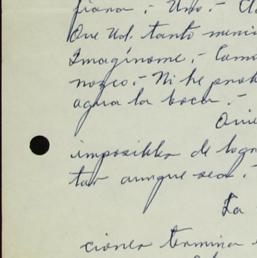 fiana.- Uno.-
Que Ud. tanto menci
Imagínome.- Como
nozco.- Ni he prob
agua la boca.-
Quie
imposibles de logr
tar aunque sea.-
La
ciones termina